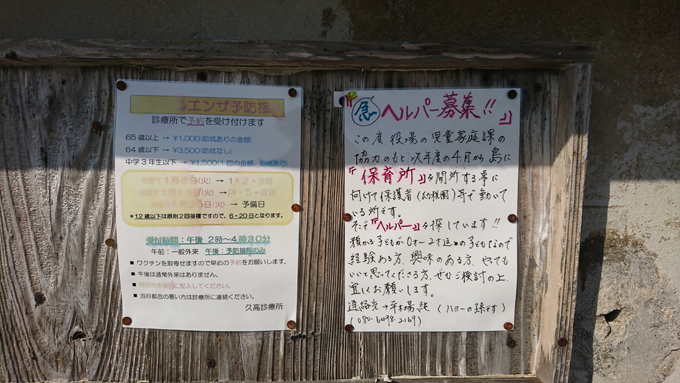 エンザ予防接
診療所で予約を受け付けます
65歳以上 → ¥1,000(助成ありの金額)
64歳以下 → ¥3,500(助成なし)
中学3年生以下 → ¥1,500(1回の金額、助成あり)
11月6日(火) → 1・2・3班
(火) → 4・5・6班
日(火) → 予備日
*12歳以下は原則2回接種ですので、6~20日となります。
受付時間:午後 2時~4時30分
午前:一般外来 午後:予防接種のみ
■ ワクチンを取寄せますので早めの予約をお願いします。
■ 午後は通常外来はありません。
に記入してください。
■ 当日都合の悪い方は診療所に連絡ください。
久高診療所
急 ヘルパー募集!!
この度役場の児童家庭課の
協力のもと次年度の4月から島に
『保育所』を開所する事に
向けて保護者(幼稚園)等で動いて
いる所です。
そこで『ヘルパー』を探しています!!
預かる子どもが0才~2才迄の子どもなので
経験ある方、興味のある方、やっても
いいと思ってくださる方、ぜひご検討の上
宜しくお願いします。
連絡先→